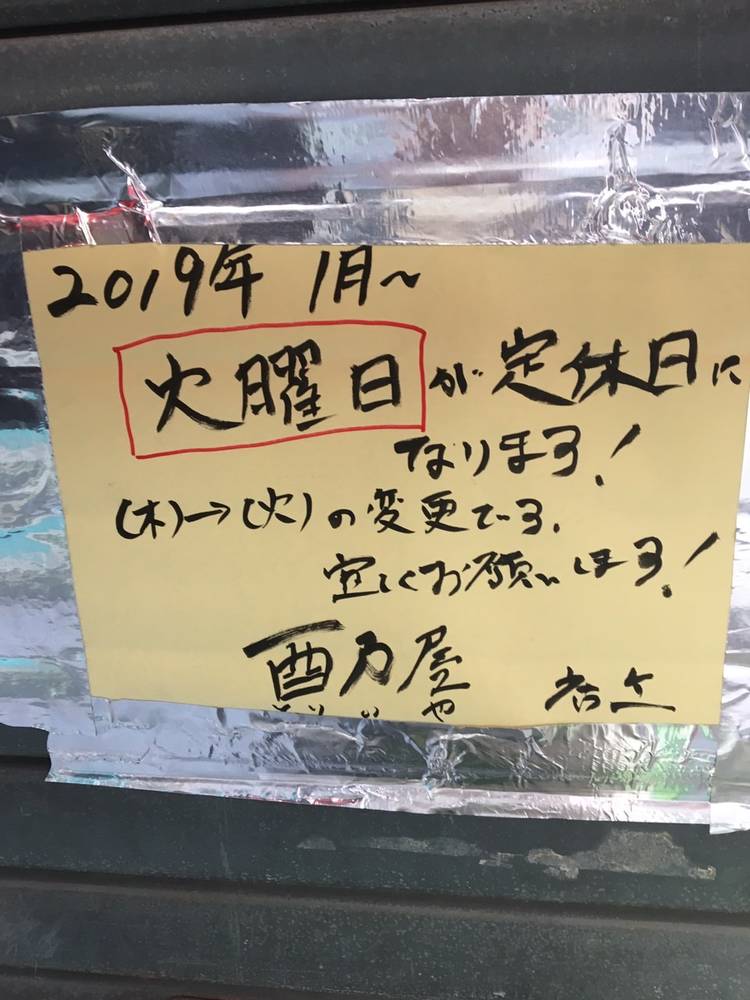 2019年 1月～
火曜日が定休日に
なります！
(木)→(火)の変更です.
宜しくお願いします！
酉乃屋 店主
とりのや